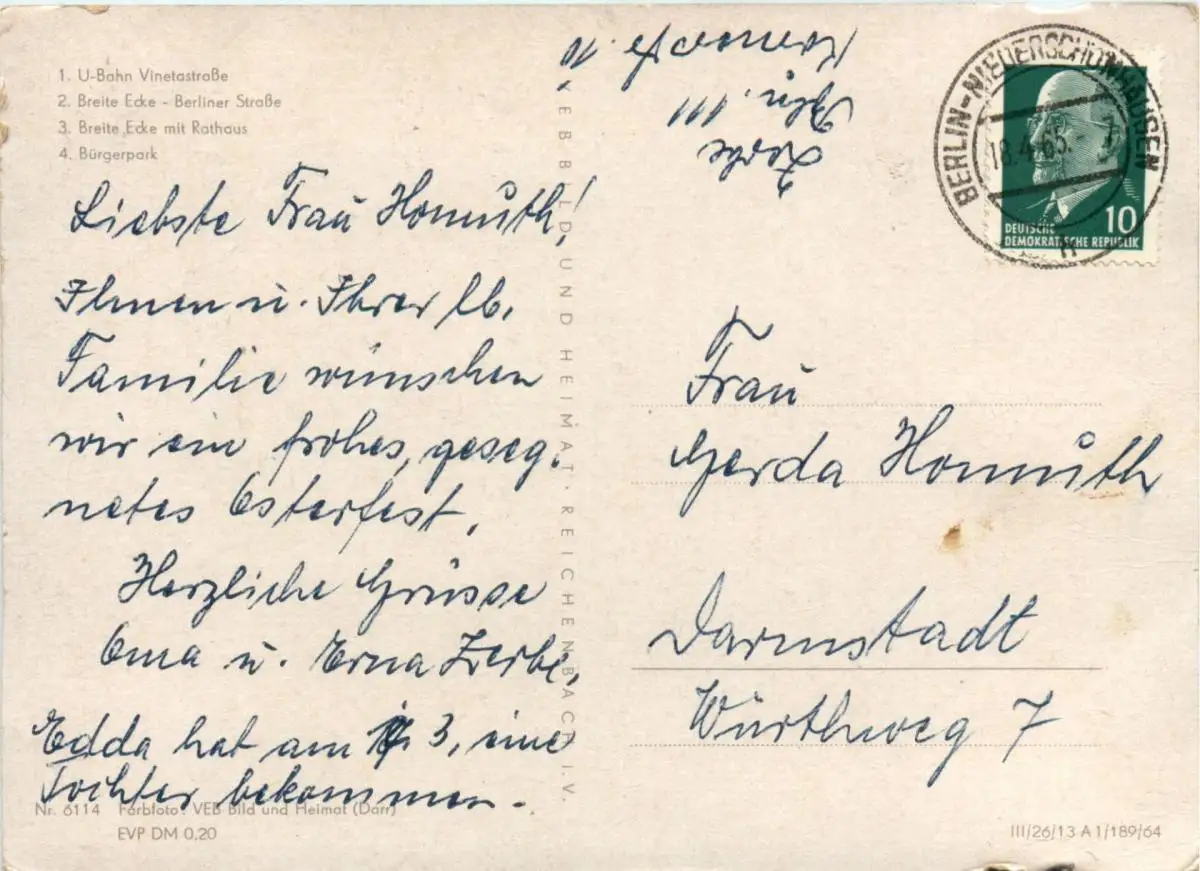 1. U-Bahn Vinetastraße
2. Breite Ecke - Berliner Straße
3. Breite Ecke mit Rathaus
4. Bürgerpark
Liebste Frau Homuth!
Ihnen u. Ihrer lb.
Familie wünschen
wir ein frohes, geseg-
netes Osterfest.
Herzliche Grüsse
Oma u. Erna Zerbe.
Edda hat am 3. eine
Tochter bekommen.
Nr. 6114 Farbfoto: VEB Bild und Heimat (Darr)
EVP DM 0,20
VEB BILD UND HEIMAT · REICHENBACH I. V.
Zerbe
Bln. 111
10
BERLIN-NIEDERSCHÖNHAUSEN
18.4.65
n
10
DEUTSCHE
DEMOKRATISCHE REPUBLIK
Frau
Gerda Homuth
Darmstadt
Würthweg 7
III/26/13 A 1/189/64